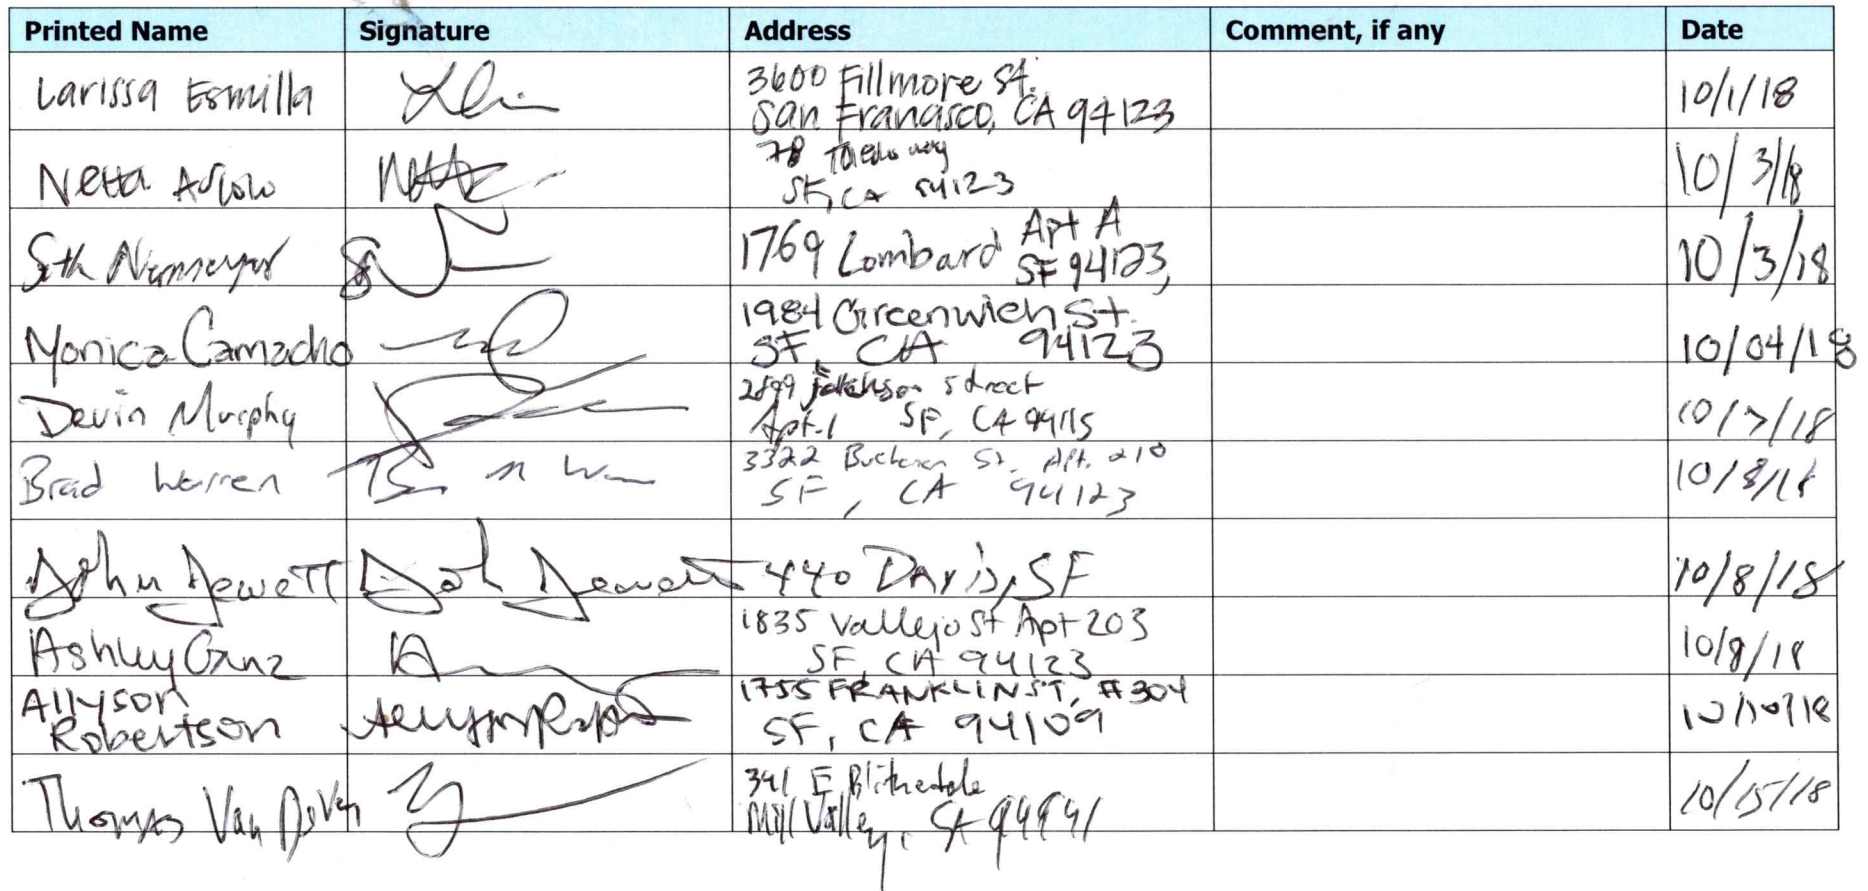 Printed Name Signature Address Comment, if any Date
Larissa Esmilla
3600 Fillmore St.
San Francisco, CA 94123
10/1/18
Netta
78 Toledo way
SF, CA 94123
10/3/18
Seth
1769 Lombard Apt A
SF 94123
10/3/18
Monica Camacho
1984 Greenwich St.
SF, CA 94123
10/04/18
Devin Murphy
street
Apt.1 SF, CA 94115
10/7/18
Brad Warren
3322 Buchanan St. Apt. 210
SF, CA 94123
10/8/18
John Jewett John Jewett 440 Davis, SF
10/8/18
Ashley Ganz
1835 Vallejo St Apt 203
SF, CA 94123
10/8/18
Allyson
Robertson
1755 FRANKLIN ST, #304
SF, CA 94109
10/10/18
Thomas Van
341 E Blithedale
Mill Valley, CA 94941
10/15/18